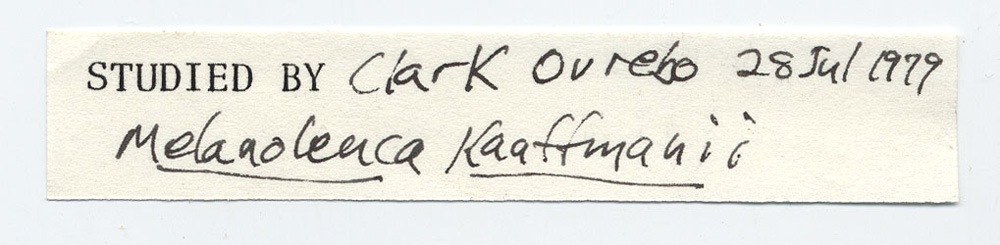 STUDIED BY Clark Ovrebo 28 Jul 1979
Melanoleuca Kauffmanii